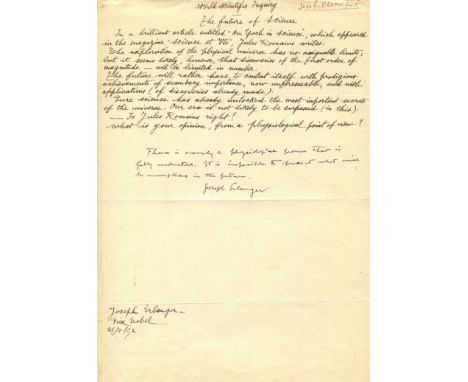 World Scientific Inquiry
Joseph ERLANGER
The future of Science
In a brilliant article entitled "An Epoch in Science", which appeared
in the magazine "Science et Vie", Jules Romains writes:
"The exploration of the physical universe has no assignable limits,
but it seems likely, however, that discoveries of the first order of
magnitude — will be limited in number.
The future will rather have to content itself with prodigious
achievements of secondary importance, now unforeseeable, and with
applications (of discoveries already made).
Pure science has already unlocked the most important secrets
of the universe. Our era is not likely to be surpassed (in this).
— Is Jules Romains right?
What is your opinion, from a physiological point of view?
There is scarcely a physiological process that is
fully understood. It is impossible to predict what will
be accomplished in the future.
Joseph Erlanger
Joseph Erlanger
Prix Nobel